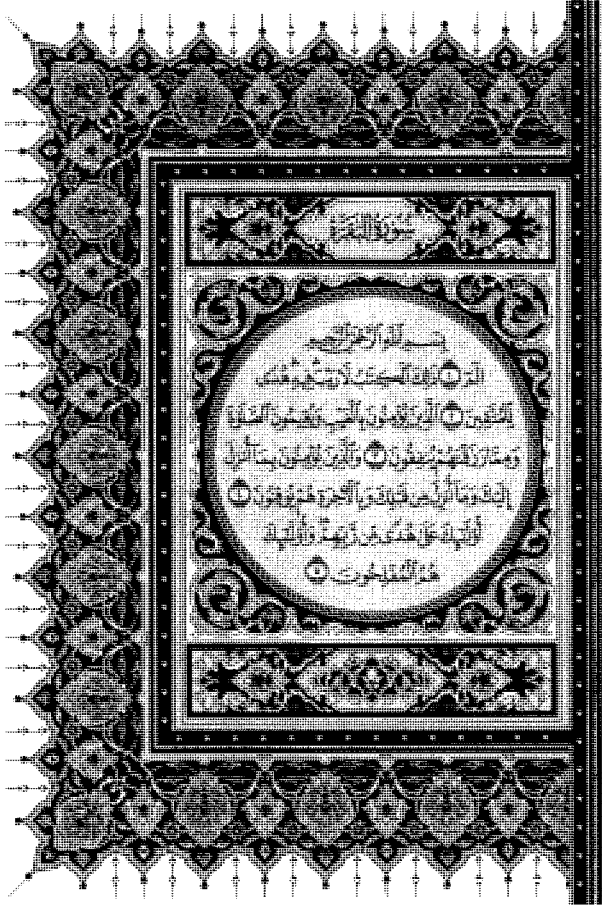 سُورَةُ الْبَقَرَةِ
بِسْمِ اللَّهِ الرَّحْمَٰنِ الرَّحِيمِ
الٓمٓ ١ ذَٰلِكَ الْكِتَٰبُ لَا رَيْبَ ۛ فِيهِ ۛ هُدًى
لِّلْمُتَّقِينَ ٢ الَّذِينَ يُؤْمِنُونَ بِالْغَيْبِ وَيُقِيمُونَ الصَّلَوٰةَ
وَمِمَّا رَزَقْنَٰهُمْ يُنفِقُونَ ٣ وَالَّذِينَ يُؤْمِنُونَ بِمَا أُنزِلَ
إِلَيْكَ وَمَا أُنزِلَ مِن قَبْلِكَ وَبِالْءَاخِرَةِ هُمْ يُوقِنُونَ ٤
أُو۟لَٰئِكَ عَلَىٰ هُدًى مِّن رَّبِّهِمْ ۖ وَأُو۟لَٰئِكَ
هُمُ الْمُفْلِحُونَ ٥